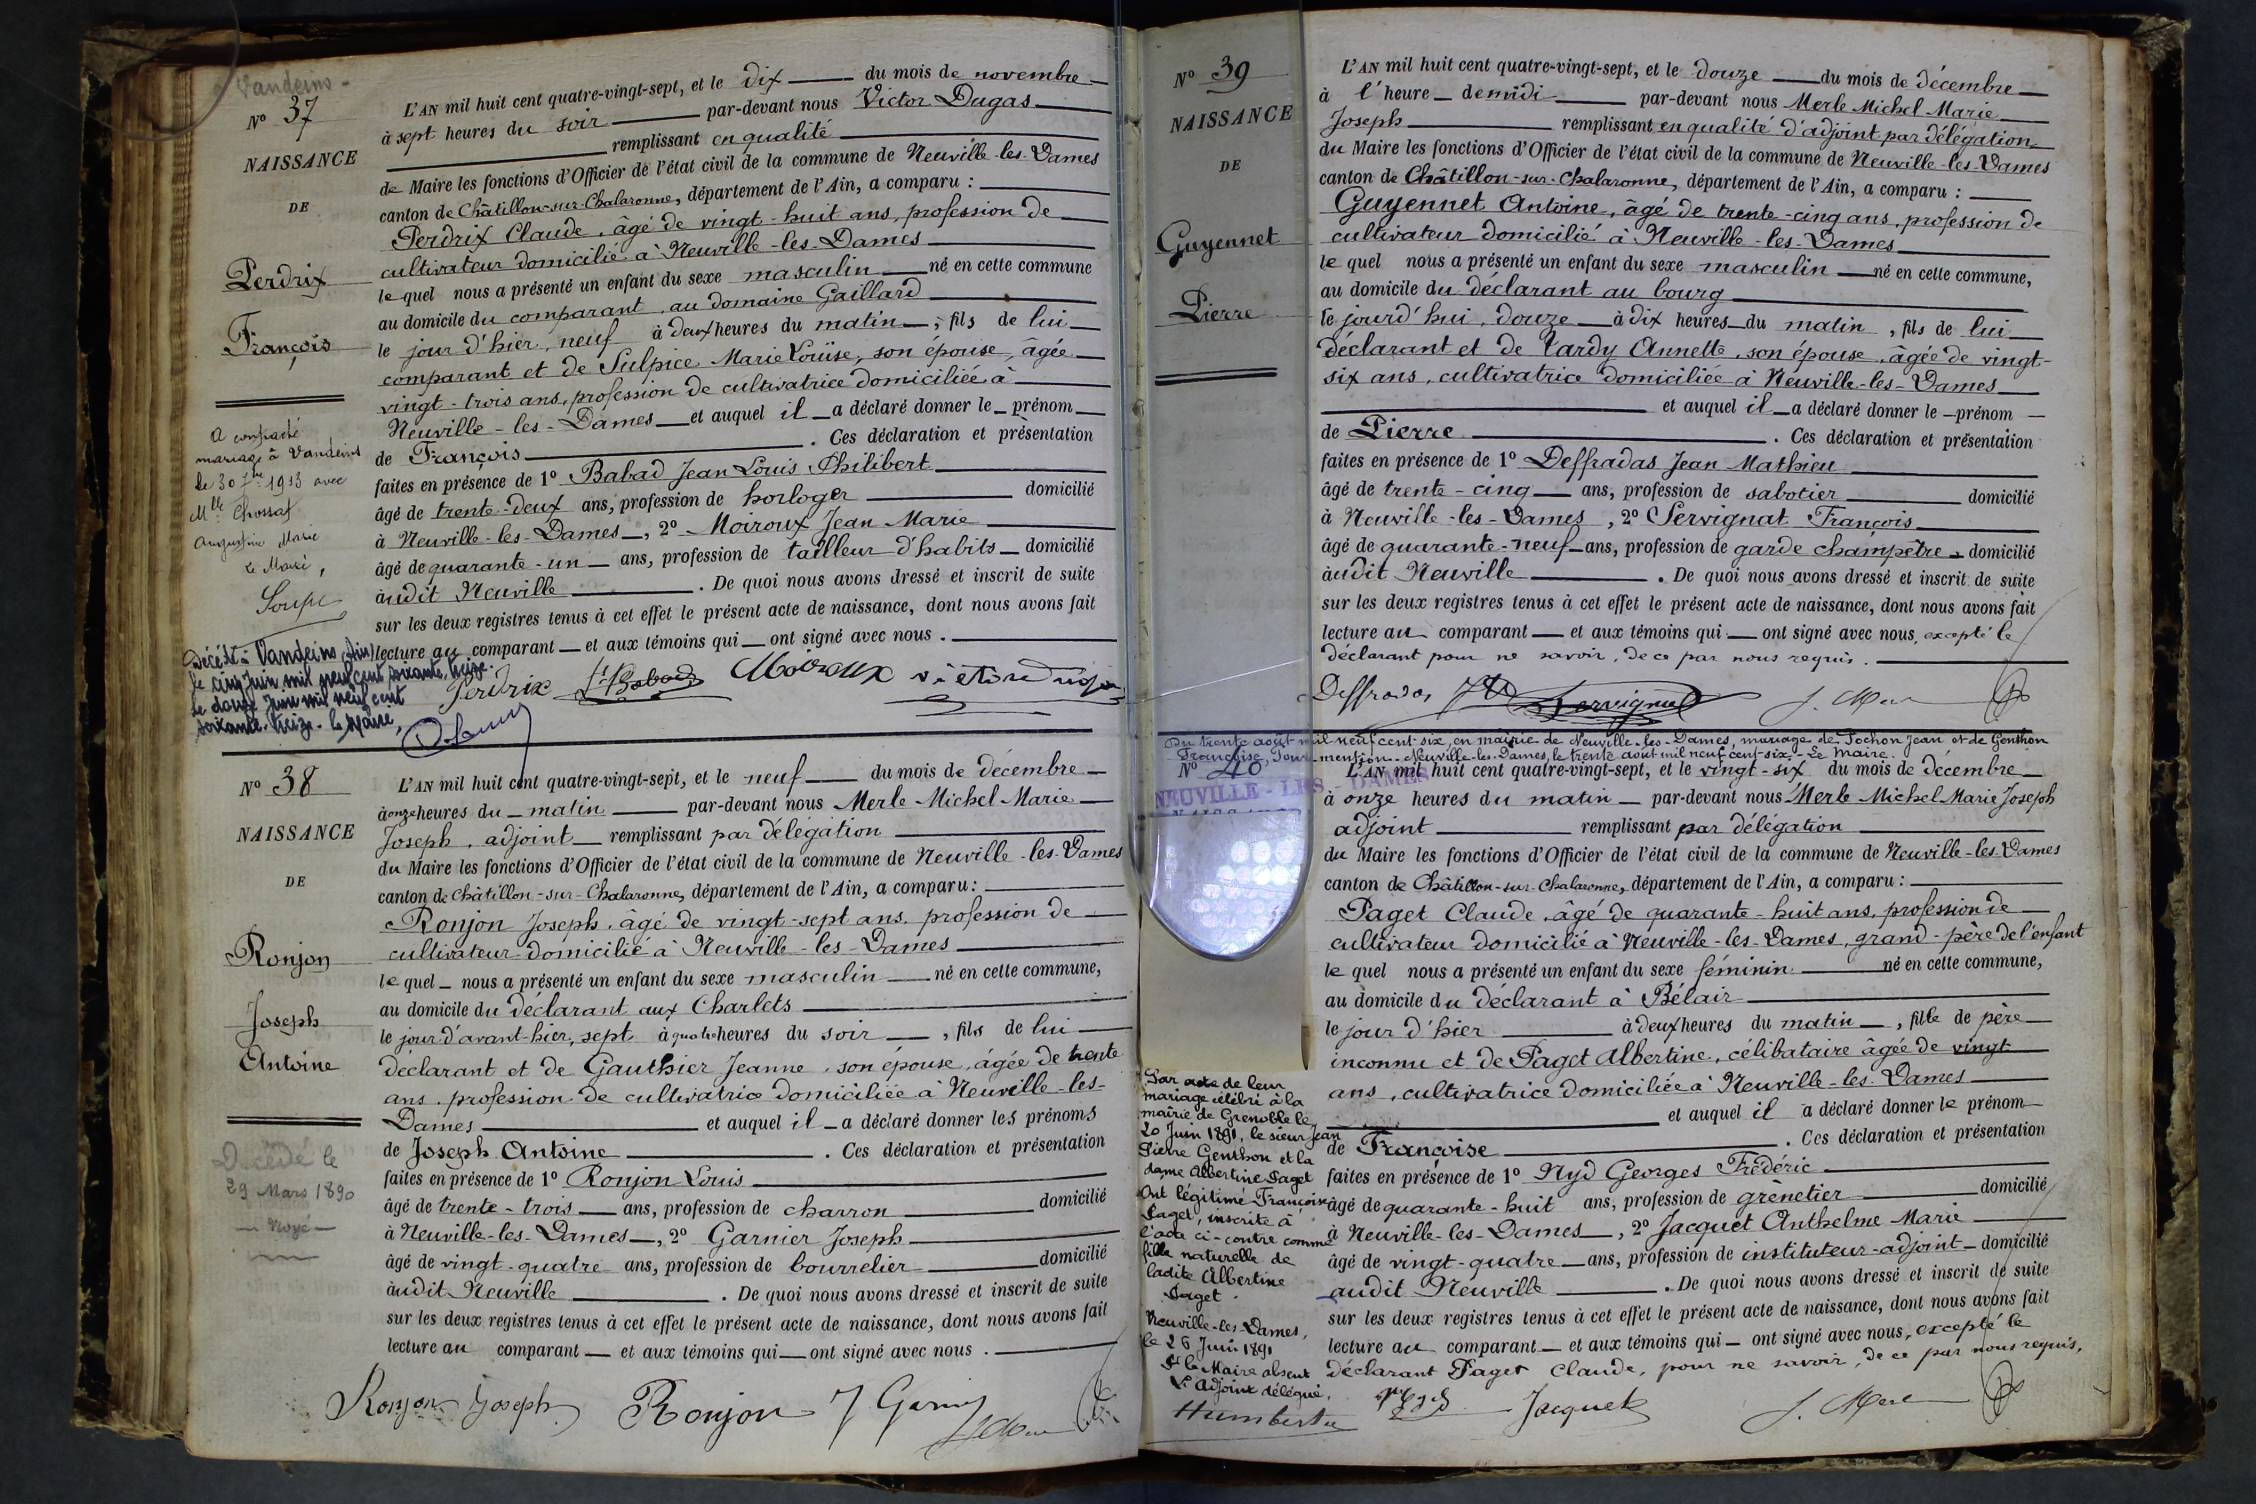 Vandeins
Nº 37
NAISSANCE
DE
Perdrix
François
A contracté
mariage à Vandeins
le 30 7bre 1913 avec
Mlle Chossat
Augustine Marie
Le Maire,
Décédé à Vandeins (Ain)
le cinq Juin mil neuf cent soixante treize.
Le douze Juin mil neuf cent
soixante treize - le Maire,
L'AN mil huit cent quatre-vingt-sept, et le dix du mois de novembre
à sept heures du soir par-devant nous Victor Dugas
remplissant en qualité
de Maire les fonctions d'Officier de l'état civil de la commune de Neuville-les-Dames
canton de Châtillon-sur-Chalaronne, département de l'Ain, a comparu :
Perdrix Claude, âgé de vingt-huit ans, profession de
cultivateur domicilié à Neuville-les-Dames
lequel nous a présenté un enfant du sexe masculin né en cette commune
au domicile du comparant, au domaine Gaillard
le jour d'hier, neuf à deux heures du matin, fils de lui
comparant et de Sulpice Marie Louise, son épouse, âgée
vingt-trois ans, profession de cultivatrice domiciliée à
Neuville-les-Dames et auquel il a déclaré donner le prénom
de François. Ces déclaration et présentation
faites en présence de 1º Babad Jean Louis Philibert
âgé de trente-deux ans, profession de horloger domicilié
à Neuville-les-Dames, 2º Moiroux Jean Marie
âgé de quarante-un ans, profession de tailleur d'habits domicilié
audit Neuville. De quoi nous avons dressé et inscrit de suite
sur les deux registres tenus à cet effet le présent acte de naissance, dont nous avons fait
lecture au comparant et aux témoins qui ont signé avec nous.
Perdrix Babad Moiroux victor dugas
Nº 38
NAISSANCE
DE
Ronjon
Joseph
Antoine
Décédé le
29 Mars 1890
Noyé
L'AN mil huit cent quatre-vingt-sept, et le neuf du mois de décembre
à onze heures du matin par-devant nous Merle Michel Marie
Joseph, adjoint remplissant par délégation
du Maire les fonctions d'Officier de l'état civil de la commune de Neuville-les-Dames
canton de Châtillon-sur-Chalaronne, département de l'Ain, a comparu :
Ronjon Joseph, âgé de vingt-sept ans, profession de
cultivateur domicilié à Neuville-les-Dames
lequel nous a présenté un enfant du sexe masculin né en cette commune,
au domicile du déclarant aux Charlets
le jour d'avant-hier, sept à quatre heures du soir, fils de lui
déclarant et de Gauthier Jeanne, son épouse, âgée de trente
ans, profession de cultivatrice domiciliée à Neuville-les-
Dames et auquel il a déclaré donner les prénoms
de Joseph Antoine. Ces déclaration et présentation
faites en présence de 1º Ronjon Louis
âgé de trente-trois ans, profession de charron domicilié
à Neuville-les-Dames, 2º Garnier Joseph
âgé de vingt-quatre ans, profession de bourrelier domicilié
audit Neuville. De quoi nous avons dressé et inscrit de suite
sur les deux registres tenus à cet effet le présent acte de naissance, dont nous avons fait
lecture au comparant et aux témoins qui ont signé avec nous.
Ronjon Joseph Ronjon J Garnier
Nº 39
NAISSANCE
DE
Guyennet
Pierre
L'AN mil huit cent quatre-vingt-sept, et le douze du mois de décembre
à l'heure de midi par-devant nous Merle Michel Marie
Joseph remplissant en qualité d'adjoint par délégation
du Maire les fonctions d'Officier de l'état civil de la commune de Neuville-les-Dames
canton de Châtillon-sur-Chalaronne, département de l'Ain, a comparu :
Guyennet Antoine, âgé de trente-cinq ans, profession de
cultivateur domicilié à Neuville-les-Dames
lequel nous a présenté un enfant du sexe masculin né en cette commune,
au domicile du déclarant au bourg
le jourd'hui, douze à dix heures du matin, fils de lui
déclarant et de Tardy Annette, son épouse, âgée de vingt-
six ans, cultivatrice domiciliée à Neuville-les-Dames
et auquel il a déclaré donner le prénom
de Pierre. Ces déclaration et présentation
faites en présence de 1º Deffradas Jean Mathieu
âgé de trente-cinq ans, profession de sabotier domicilié
à Neuville-les-Dames, 2º Servignat François
âgé de quarante-neuf ans, profession de garde champêtre domicilié
audit Neuville. De quoi nous avons dressé et inscrit de suite
sur les deux registres tenus à cet effet le présent acte de naissance, dont nous avons fait
lecture au comparant et aux témoins qui ont signé avec nous, excepté le
déclarant pour ne savoir, de ce par nous requis.
Deffradas Servignat J. Merle
Du trente août mil neuf cent six, en mairie de Neuville-les-Dames, mariage de Pochon Jean et de Genthon
Françoise, Pour mention. Neuville-les-Dames, le trente août mil neuf cent six. Le Maire.
Nº 40
NEUVILLE-LES-DAMES
Par acte de leur
mariage célébré à la
mairie de Grenoble le
20 Juin 1891, le sieur Jean
Pierre Genthon et la
dame Albertine Paget
ont légitimé Françoise
Paget, inscrite à
l'acte ci-contre comme
fille naturelle de
ladite Albertine
Paget.
Neuville-les-Dames,
le 26 Juin 1891
Pr le Maire absent
L'Adjoint délégué,
L'AN mil huit cent quatre-vingt-sept, et le vingt-six du mois de décembre
à onze heures du matin par-devant nous Merle Michel Marie Joseph
adjoint remplissant par délégation
du Maire les fonctions d'Officier de l'état civil de la commune de Neuville-les-Dames
canton de Châtillon-sur-Chalaronne, département de l'Ain, a comparu :
Paget Claude, âgé de quarante-huit ans, profession de
cultivateur domicilié à Neuville-les-Dames, grand-père de l'enfant
lequel nous a présenté un enfant du sexe féminin né en cette commune,
au domicile du déclarant à Bélair
le jour d'hier à deux heures du matin, fille de père
inconnu et de Paget Albertine, célibataire âgée de vingt
ans, cultivatrice domiciliée à Neuville-les-Dames
et auquel il a déclaré donner le prénom
de Françoise. Ces déclaration et présentation
faites en présence de 1º Nyd Georges Frédéric
âgé de quarante-huit ans, profession de grènetier domicilié
à Neuville-les-Dames, 2º Jacquet Anthelme Marie
âgé de vingt-quatre ans, profession de instituteur-adjoint domicilié
audit Neuville. De quoi nous avons dressé et inscrit de suite
sur les deux registres tenus à cet effet le présent acte de naissance, dont nous avons fait
lecture au comparant et aux témoins qui ont signé avec nous, excepté le
déclarant Paget Claude, pour ne savoir, de ce par nous requis.
Jacquet J. Merle